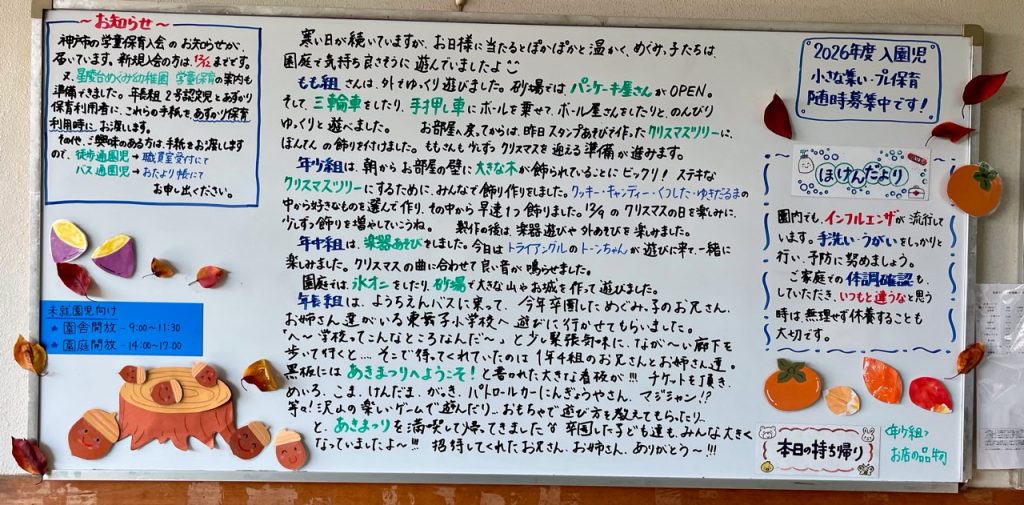 ～お知らせ～
神戸市の学童保育入会のお知らせが、
届いています。新規入会の方は、12/12までです。
又、星陵台めぐみ幼稚園 学童保育の案内も
準備できました。年長組 2号認定児とあずかり
保育利用者に、これらの手紙を、あずかり保育
利用時に、お渡します。
その他、ご興味のある方は、手紙をお渡しします
ので、徒歩通園児→職員室受付にて
バス通園児→おたより帳にて
お申し出ください。
未就園児向け
★園舎開放-9:00～11:30
★園庭開放-14:00～17:00
寒い日が続いていますが、お日様に当たるとぽかぽかと温かく、めぐみっ子たちは、
園庭で気持ち良さそうに遊んでいましたよ
もも組さんは、外でゆっくり遊びました。砂場では パンケーキ屋さんがOPEN。
そして、三輪車をしたり、手押し車にボールを乗せて、ボール屋さんをしたりと、のんびり
ゆっくりと遊べました。 お部屋へ戻ってからは、昨日スタンプあそびで作ったクリスマスツリーに、
ぼんてんの飾りを付けました。ももさんも少しずつクリスマスを迎える準備が進みます。
年少組は、朝からお部屋の壁に大きな木が飾られていることにビックリ！ステキな
クリスマスツリーにするために、みんなで飾り作りをしました。クッキー・キャンディー・くつした・ゆきだるまの
中から好きなものを選んで作り、その中から早速1つ飾りました。12/24のクリスマスの日を楽しみに、
少しずつ飾りを増やしていこうね。 製作の後は、楽器遊びや外あそびを楽しみました。
年中組は、楽器あそびをしました。今日はトライアングルのトーンちゃんが遊びに来て、一緒に
楽しみました。クリスマスの曲に合わせて良い音が鳴らせました。
園庭では、氷オニをしたり、砂場で大きな山やお城を作って遊びました。
年長組は、ようちえんバスに乗って、今年卒園しためぐみっ子のお兄さん、
お姉さん達がいる東舞子小学校へ遊びに行かせてもらいました。
「へ～学校ってこんなところなんだ～」と少し緊張気味に、なが～い廊下を
歩いて行くと…。そこで待ってくれていたのは1年4組のお兄さんとお姉さん達。
黒板には あきまつりへようこそ！と書かれた大きな看板が!!! チケットを頂き、
めいろ、こま、けんだま、がっき、パトロールカーにんぎょうやさん、マジシャン!?
等々！沢山の楽しいゲームで遊んだり、おもちゃで遊び方を教えてもらったり…
と、あきまつりを満喫して帰ってきました 卒園した子ども達も、みんな大きく
なっていましたよ～!!! 招待してくれたお兄さん、お姉さん、ありがとう～!!!
2026年度 入園児
小さな集い・プレ保育
随時募集中です！
ほけんだより
園内でも、インフルエンザが流行して
います。手洗い・うがいをしっかりと
行い、予防に努めましょう。
ご家庭での体調確認も、
していただき、いつもと違うなと思う
時は、無理せず休養することも
大切です。
本日の持ち帰り
〈年少組〉
お店の品物